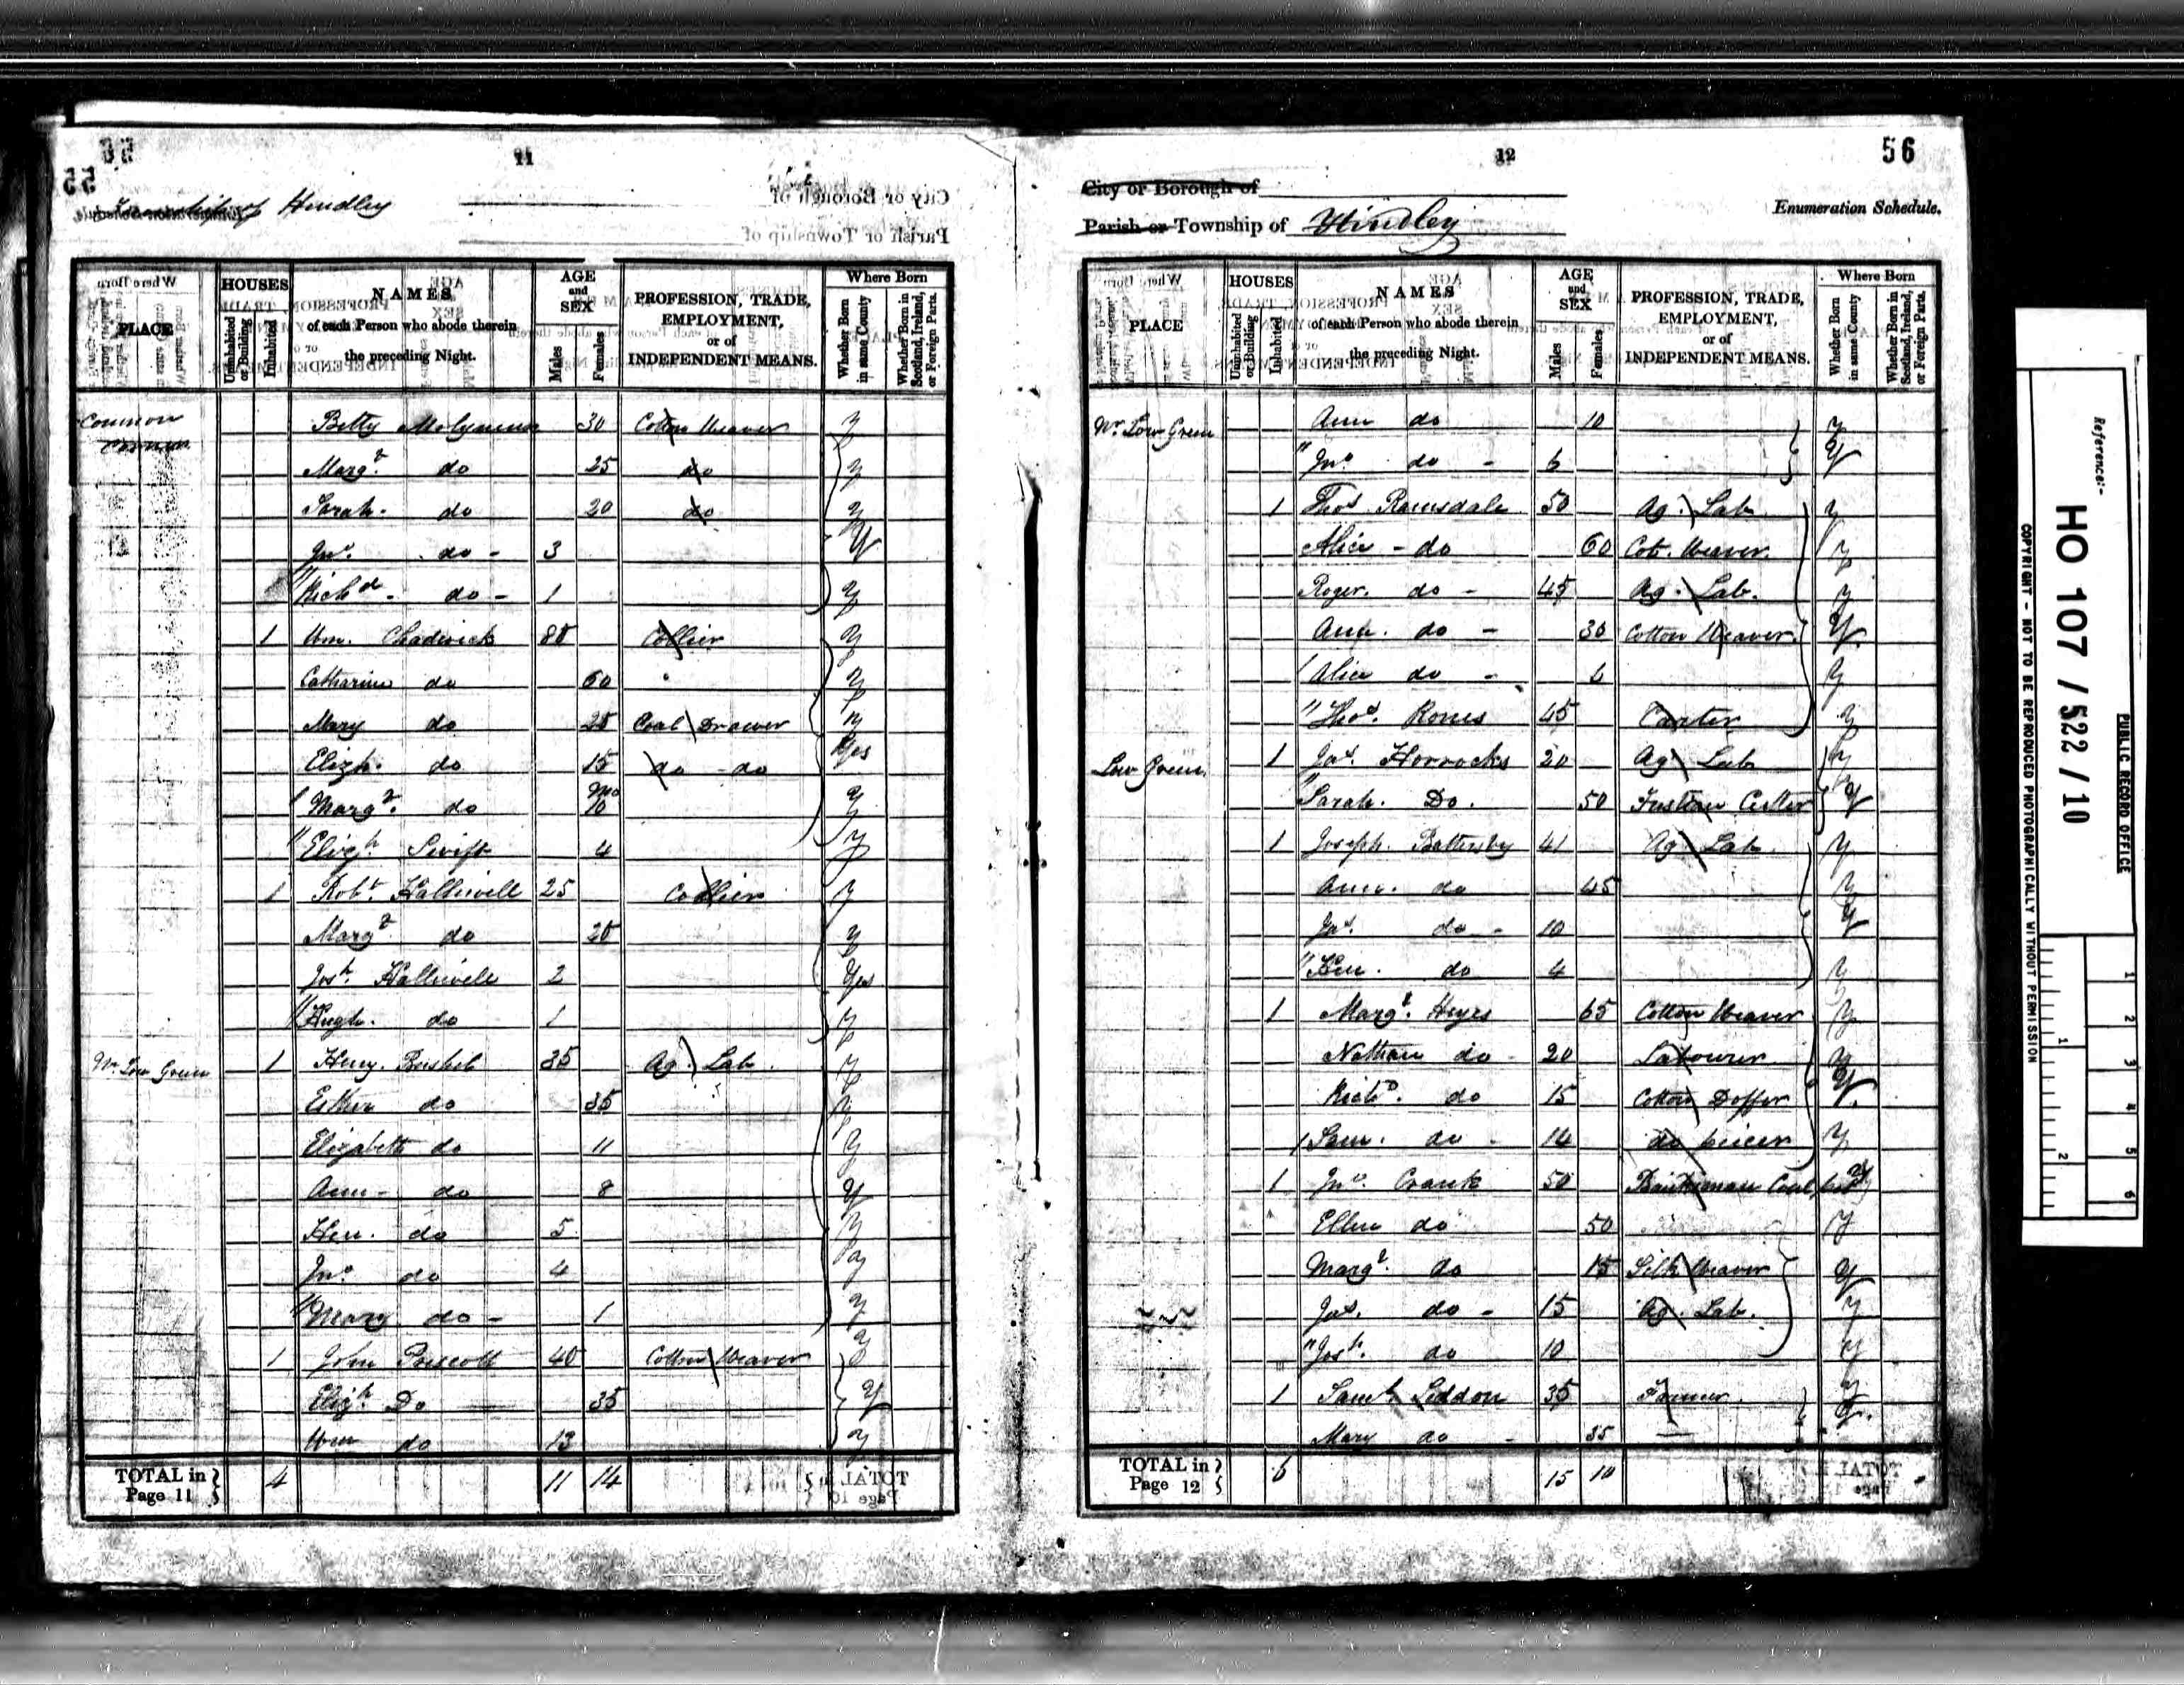 11
Township of Hindley
City or Borough of
Parish or Township of
PLACE
HOUSES
Uninhabited or Building
Inhabited
NAMES
of each Person who abode therein
the preceding Night.
AGE
and
SEX
Males
Females
PROFESSION, TRADE,
EMPLOYMENT,
or of
INDEPENDENT MEANS.
Where Born
Whether Born in same County
Whether Born in Scotland, Ireland, or Foreign Parts.
Common Betty Molyneux 30 Cotton Weaver y
Margt. do 25 do y
Sarah. do 20 do y
Jno. do - 3 y
Richd. do - 1 y
1 Wm. Chadwick 85 Collier y
Catharine do 60 y
Mary do 25 Coal Drawer y
Elizh. do 15 do - do Yes
Margt. do mo 10 y
Elizh. Swift 4 y
1 Robt. Halliwell 25 Collier y
Margt. do 25 y
Josh. Halliwell 2 Yes
Hugh. do 1 y
Nr. Low Green 1 Henry. Bushel 35 Ag. Lab. y
Esther do 35 y
Elizabeth do 11 y
Ann - do 8 y
Hen. do 5 y
Jno. do 4 y
Mary do - 1 y
1 John Prescott 40 Cotton Weaver y
Elizh. Do 35 y
Wm do 13 y
TOTAL in Page 11 4 11 14
12
56
City or Borough of
Parish or Township of Hindley
Enumeration Schedule.
PLACE
HOUSES
Uninhabited or Building
Inhabited
NAMES
of each Person who abode therein
the preceding Night.
AGE
and
SEX
Males
Females
PROFESSION, TRADE,
EMPLOYMENT,
or of
INDEPENDENT MEANS.
Where Born
Whether Born in same County
Whether Born in Scotland, Ireland, or Foreign Parts.
Nr. Low Green Ann do 10 y
Jno. do - 6 y
1 Thos Ramsdale 50 Ag. Lab y
Alice - do 60 Cot. Weaver. y
Roger. do - 45 Ag. Lab. y
Ann. do - 30 Cotton Weaver. y
Alice do - 6 y
Thos. 45 Carter y
Low Green 1 Jas. Horrocks 20 Ag Lab y
Sarah. Do. 50 Fustian Cutter y
1 Joseph. Battersby 41 Ag Lab y
Ann. do 45 y
Jas. do - 10 y
do 4 y
1 Margt. Heyes 65 Cotton Weaver y
Nathan do - 20 Labourer y
Richd. do 15 Cotton Doffer y
Sam. do - 14 do y
1 Jno. Crank 50 Banksman Coal y
Ellen do 50 y
Margt. do 15 Silk Weaver y
Jas. do - 15 Ag. Lab. y
Josh. do 10 y
1 Saml Seddon 35 Farmer. y
Mary do - 35 y
TOTAL in Page 12 6 15 10
Reference:-
HO 107 / 522 / 10
PUBLIC RECORD OFFICE
COPYRIGHT - NOT TO BE REPRODUCED PHOTOGRAPHICALLY WITHOUT PERMISSION
1 2 3 4 5 6
1 2